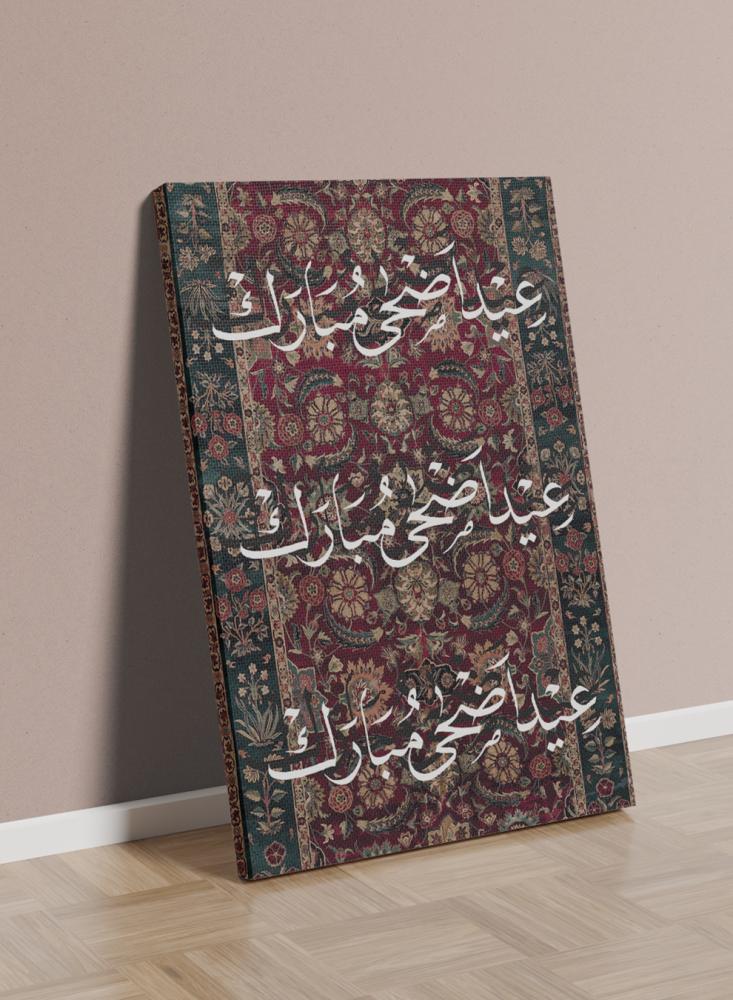 عِيْد اَضْحٰى مُبَارَك
عِيْد اَضْحٰى مُبَارَك
عِيْد اَضْحٰى مُبَارَك